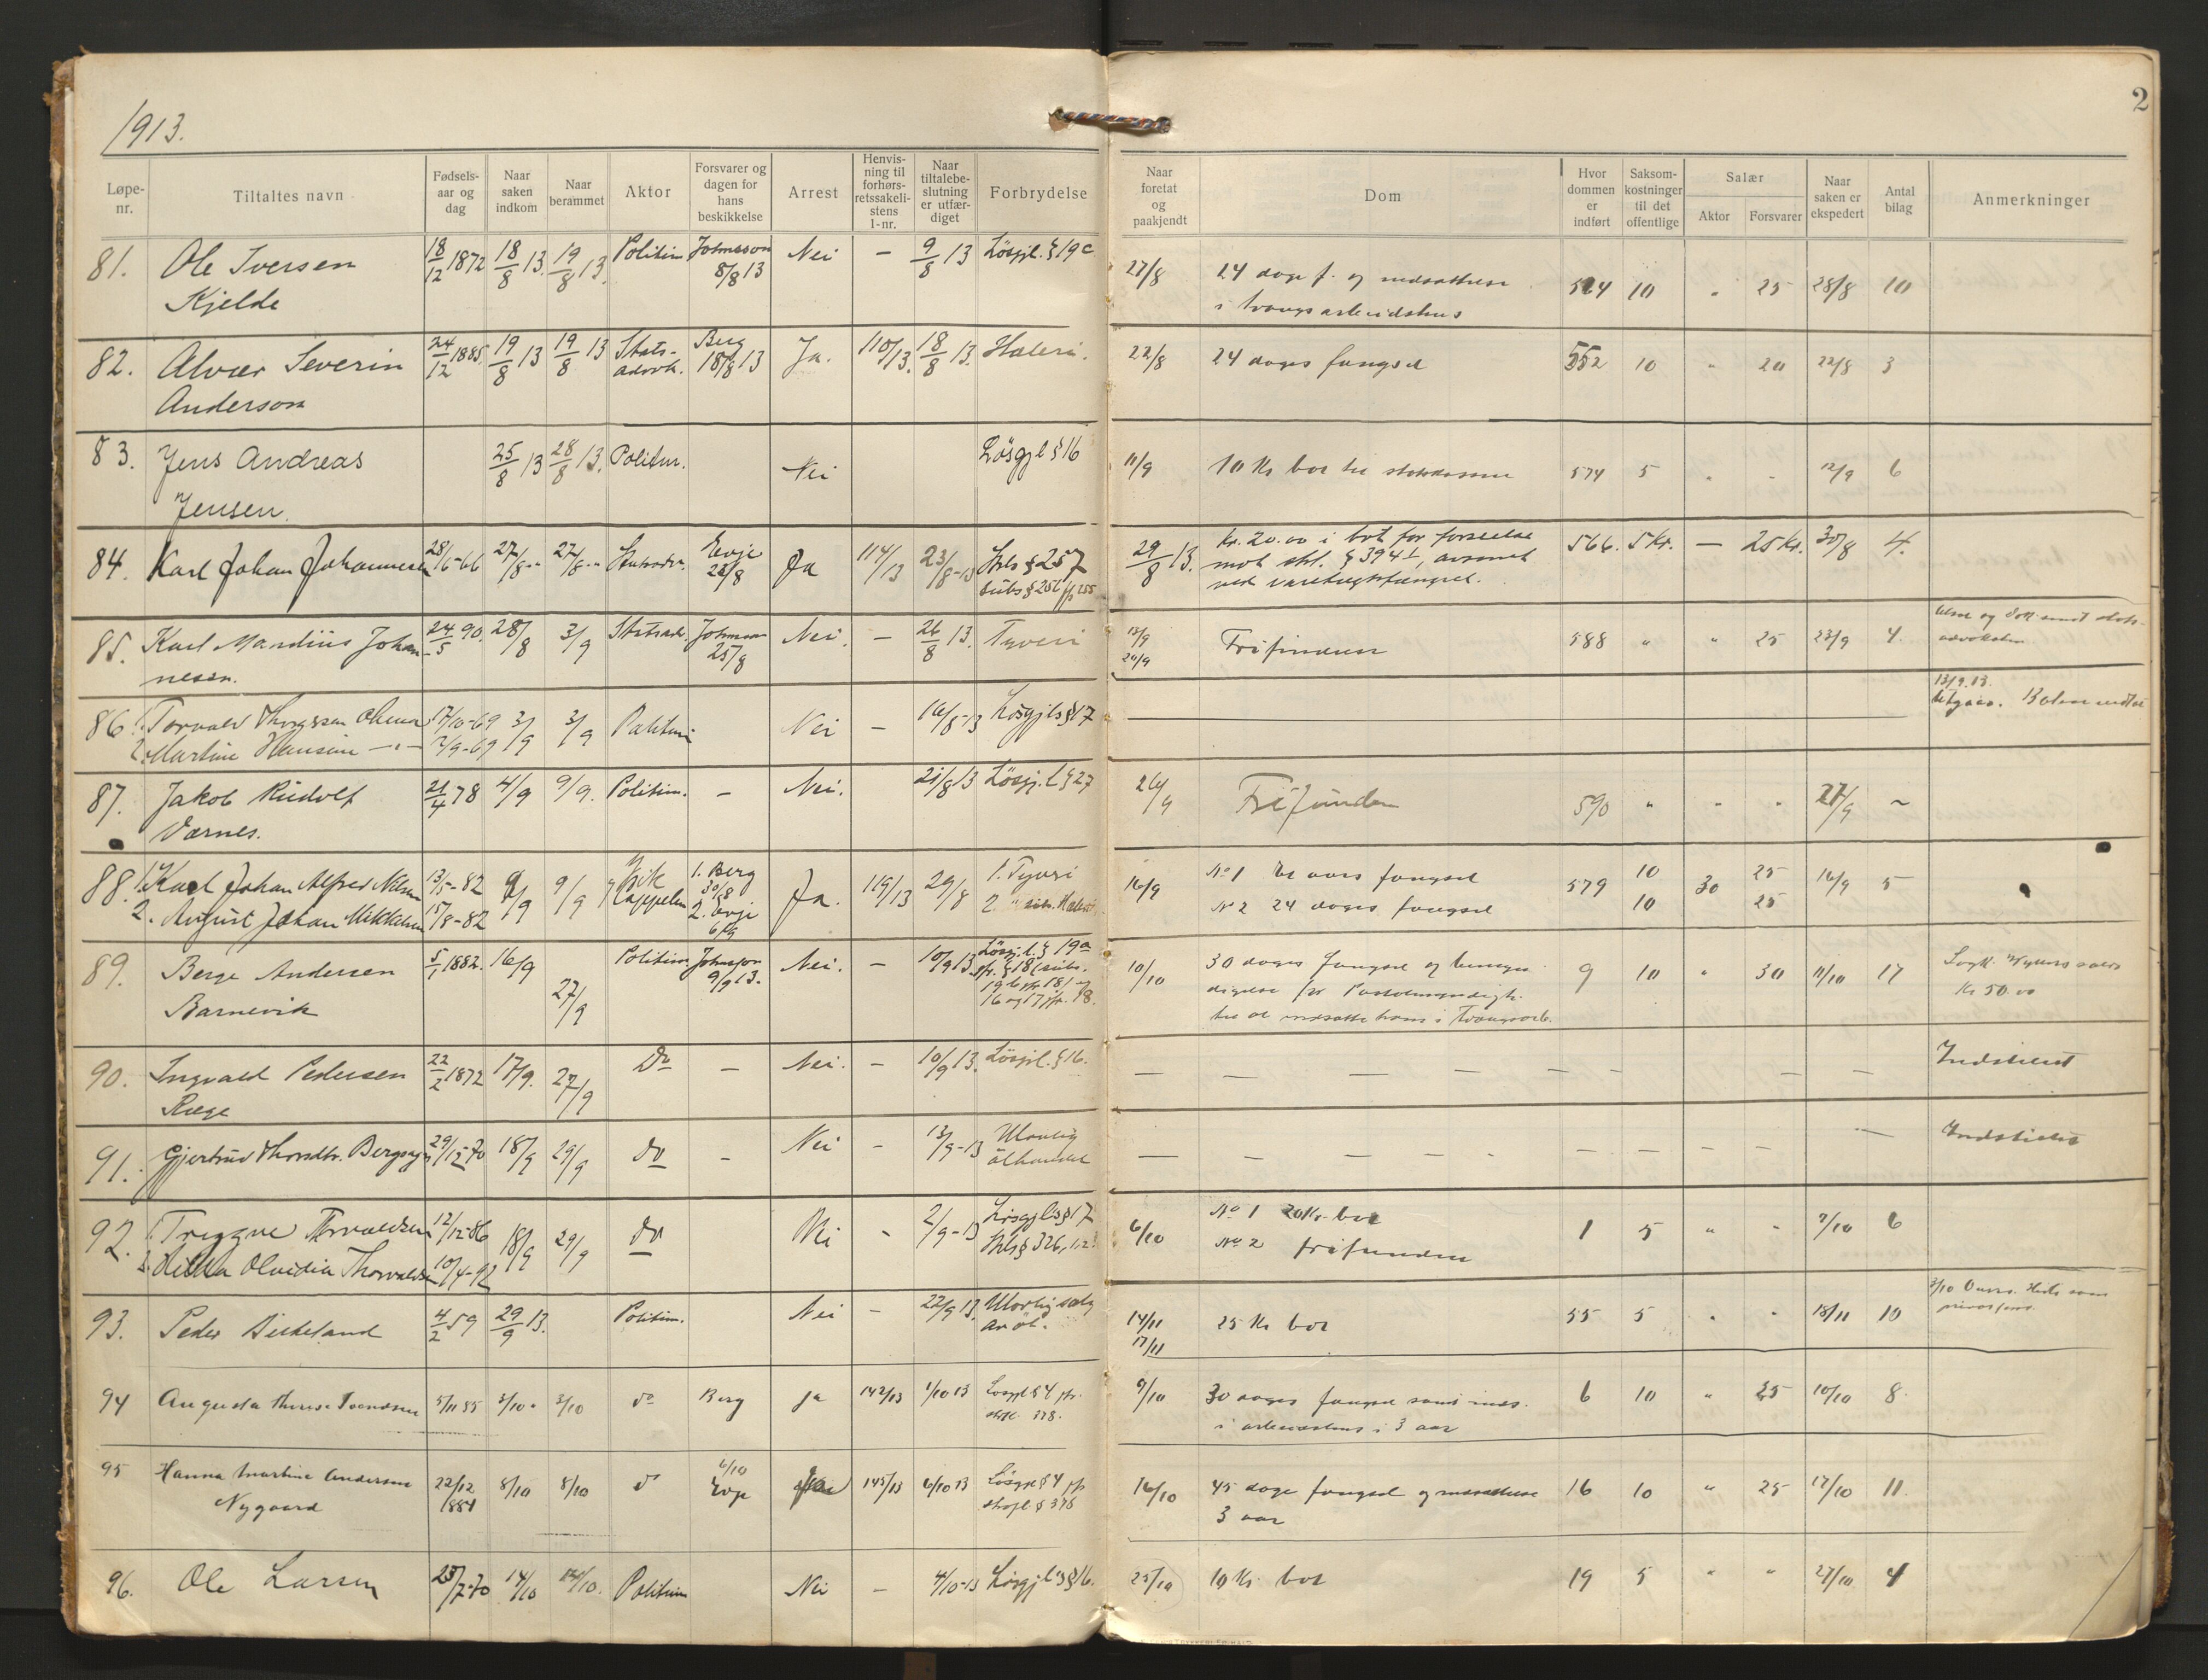 1913.
2
Løpe-nr. Tiltaltes navn Fødsels-aar og dag Naar saken indkom Naar berammet Aktor Forsvarer og dagen for hans beskikkelse Arrest Henvis-ning til forhørs-retssakeli-stens l-nr. Naar tiltalebe-slutning er utfær-diget Forbrydelse Naar foretat og paakjendt Dom Hvor dommen er indført Saksom-kostninger til det offentlige Salær Aktor Forsvarer Naar saken er ekspedert Antal bilag Anmerkninger
81. Ole Iversen 18/12 1872 18/8 13. 19/8 13. Politim Johnsson 8/8 13 Nei — 9/8 13 Løsgjl. § 19c 27/8 24 dage f. og indsættelse 524 10 " 25 28/8 10
Kjelde i tvangsarbeidshus
82. Alvær Severin 24/12 1885. 19/8 13 19/8 13 Stats-advok. Berg 18/8 13 Ja. 110/13. 18/8 13. Haleri. 22/8 24 dages fængsel 552 10 " 20 22/8 3
Anderson
83. Jens Andreas 25/8 13 28/8 13. Politim. Nei Løsgjl § 16 11/9 10 Kr bot til statskassen 574 5 " " 12/9 6
Jensen.
84. Karl Johan Johannesen 28/1-66 27/8-" 27/8-" Statsadv. Evje 25/8 Ja 114/13 23/8-13 Strls § 257 29/8 13. Kr. 20.00 i bot for forseelse 566. 5 Kr. — 25 Kr. 30/8 4.
subs § 256 jfr 255 mot strl. § 394 I, avsonet
ved varetægtsfængsel.
85. Karl Mandius Johan 24/5 90. 28/8 3/9 Statsadv. Johnsson 25/8 Nei. — 26/8 13. Tyveri 13/9 20/9 Frifunden 588 " " 25 23/9 4. og dok. sendt stats-
nesen. advokaten
86. 1. Torvald Thorgersen Olsen 17/10-69 3/9 3/9 Politim Nei — 16/8-13 Løsgjls § 17 13/9.13. Utgaar. Boten vedtat
2. Martine Hansine —"— 2/9-69
87. Jakob Rudolf 21/4 78 4/9 9/9. Politim. — Nei. 21/8 13 Løsgj. l § 27 26/9 Frifunden 590 " " " 27/9 ~
Varnes.
88. 1. Karl Johan Alfred Nilsen 13/5-82 9/9 9/9 Cappelen 1. Berg 30/8 Ja. 119/13 29/8 1. Tyveri 16/9 No 1 Et aars fængsel 579 10 30 25 16/9 5
2. August Johan Mikkelsen 15/8-82 2. Evje 6/9 2. " sub. Haleri No 2 24 dages fængsel 10 25
89. Berge Andersen 5/1 1882. 16/9 27/9 Politim Johnsson 9/9 13. Nei. — 10/9 13. Løsgj. l. § 19a 10/10 30 dages fængsel og bemyn- 9 10 " 30 11/10 17
Barnevik jfr. § 18 (subs. 19 b jfr 18) og 16 og 17 jfr. 18. digelse for Paatalemyndigh. Kr 50.00
til at indsætte ham i Tvangsarb.
90. Ingvald Pedersen 22/2 1872 17/9. 27/9 Do — Nei. — 10/9 13. Løsgjl. § 16. — — — — — — — — — Indstillet
Ræge
91. Gjertrud Thorsdtr. Bergsagel 29/12-70 18/9 29/9 do — Nei — 13/9-13 Ulovlig ølhandel — — — — — — — — — Indstillet
92. 1. Trygve Torvaldsen 12/12-86 18/9 29/9 do Nei — 2/9-13 Løsgjls § 17 6/10 No 1 20 Kr. bot 1 5 " " 7/10 6
2. Hilda Olvidia Thorvaldsen 10/4-92 Strls § 326, 1.2 No 2 frifunden
93. Peder Birkeland 4/2 59 29/9 13. Politim. Nei — 22/9 13. Ulovlig salg av øl. 14/11 17/11 25 Kr bot 55 5 " " 18/11 10
94 Augusta Therese Svendsen 5/11 85 3/10. 3/10 do Berg Ja 142/13 1/10 13 Løsgjl § 4 jfr. strfl. 378. 9/10 30 dages fængsel samt inds. 6 10 " 25 10/10 8.
i arbeidshus i 3 aar
95 Hanna Martine Andersen 22/12 1884 8/10 8/10 do 6/10 Evje Ja 145/13 6/10 13 Løsgjl § 4 jfr strafl § 378 16/10 45 dage fængsel og indsættelse 16 10 " 25 17/10 11.
Nygaard 3 aar
96. Ole Larsen 25/7-70 14/10 14/10. Politim Nei — 4/10-13 Løsgjls § 16. 25/10 10 Kr. bot 19 5 " " 27/10 4